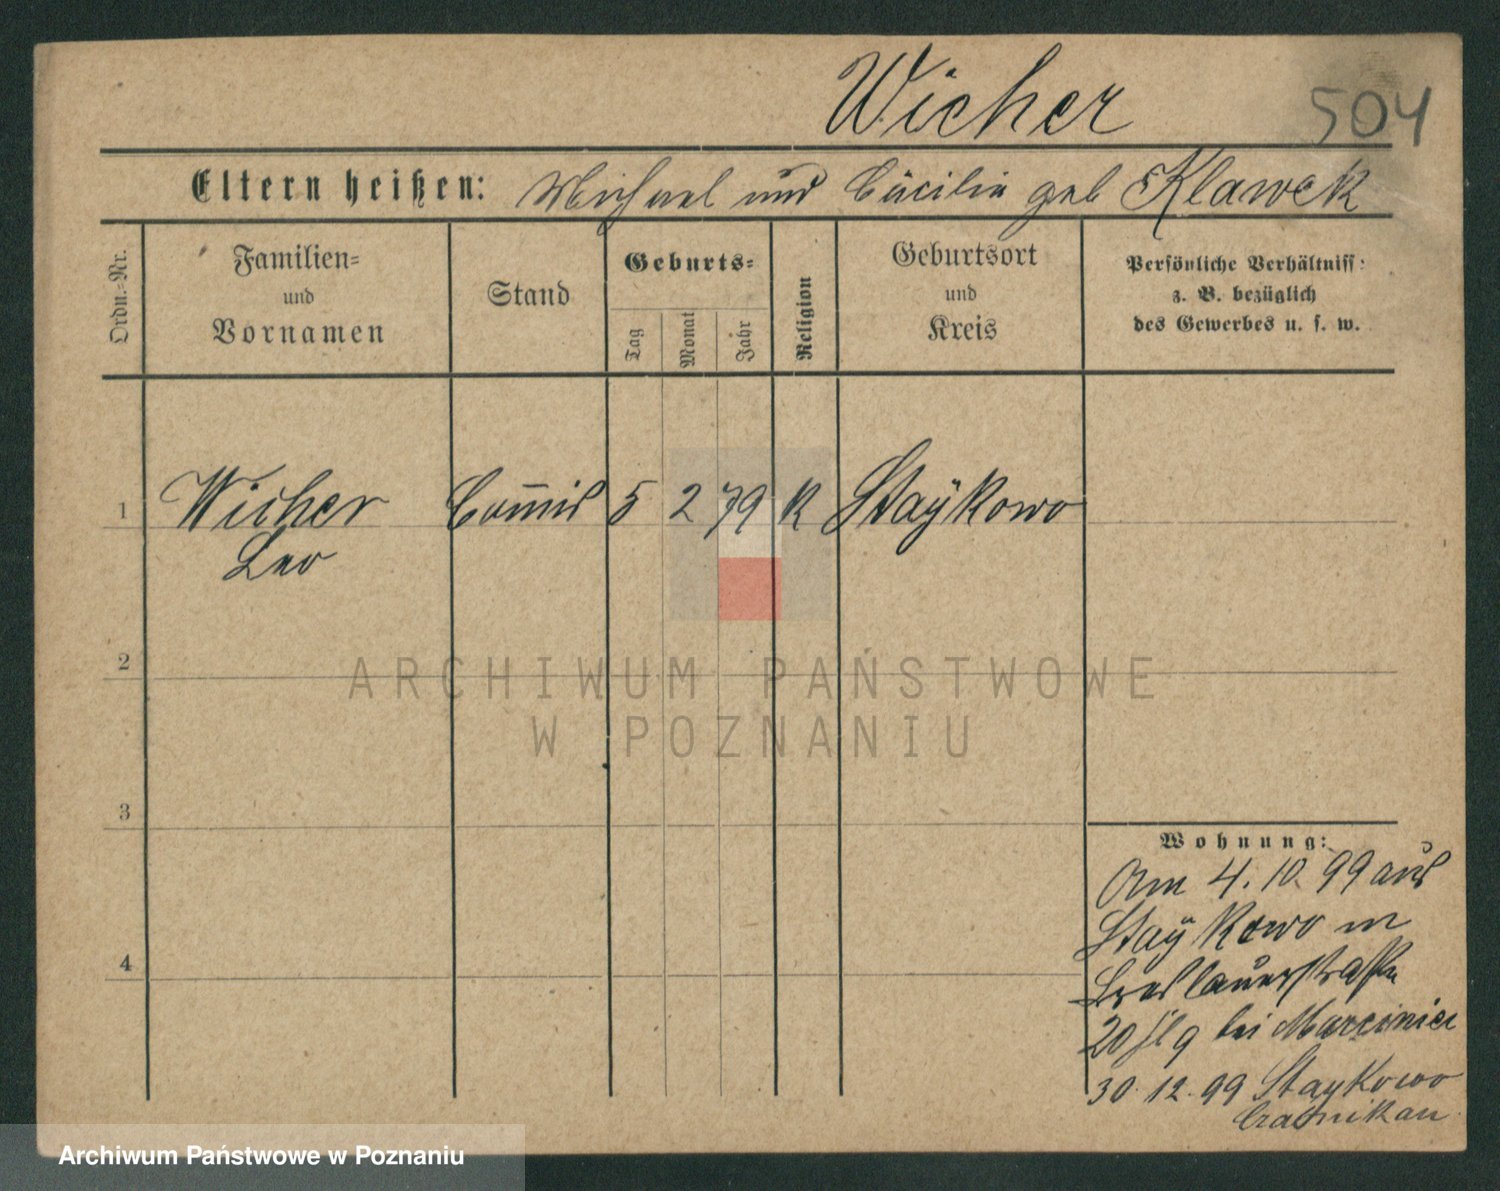 Wicher
504
Eltern heißen: Michael und Cäcilie geb Klawek
Ordn.-Nr.
Familien-
und
Vornamen
Stand
Geburts-
Tag
Monat
Jahr
Religion
Geburtsort
und
Kreis
Persönliche Verhältniss
z. B. bezüglich
des Gewerbes u. s. w.
1 Wicher Commis 5 2 79 K Staÿkowo
Leo
2
3
4
Wohnung:
Am 4. 10. 99 aus
Staÿkowo in
Breslauerstraße
20 bei
30. 12. 99 Staykowo
Czarnikau
ARCHIWUM PAŃSTWOWE
W POZNANIU
Archiwum Państwowe w Poznaniu